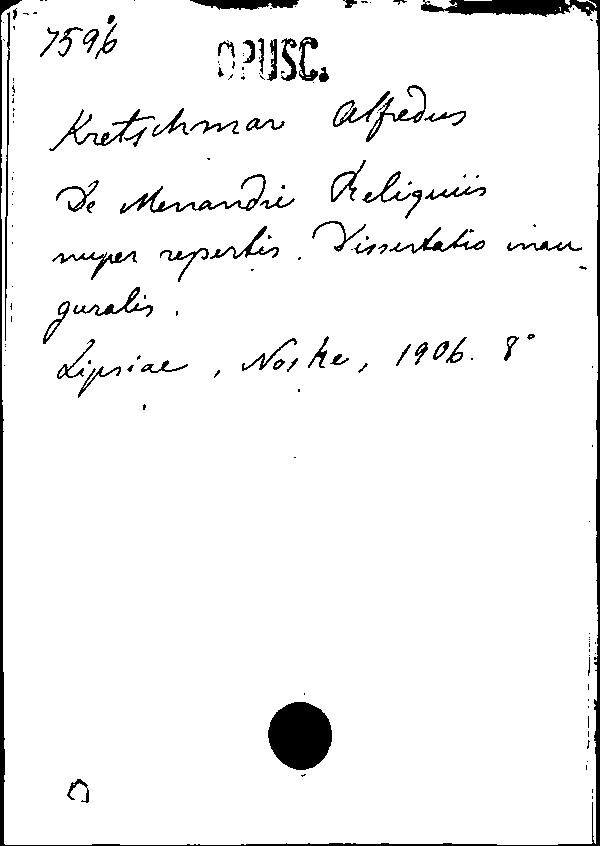 7596
OPUSC.
Kretschmar Alfredus
De Menandri Reliquiis
nuper repertis. Dissertatio inau
guralis.
Lipsiae, Noske, 1906. 8°